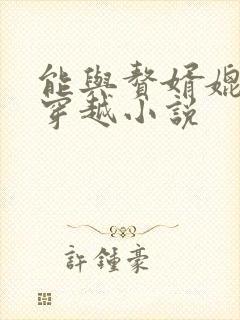 能與贅婿媲
穿越小說
許鍾豪